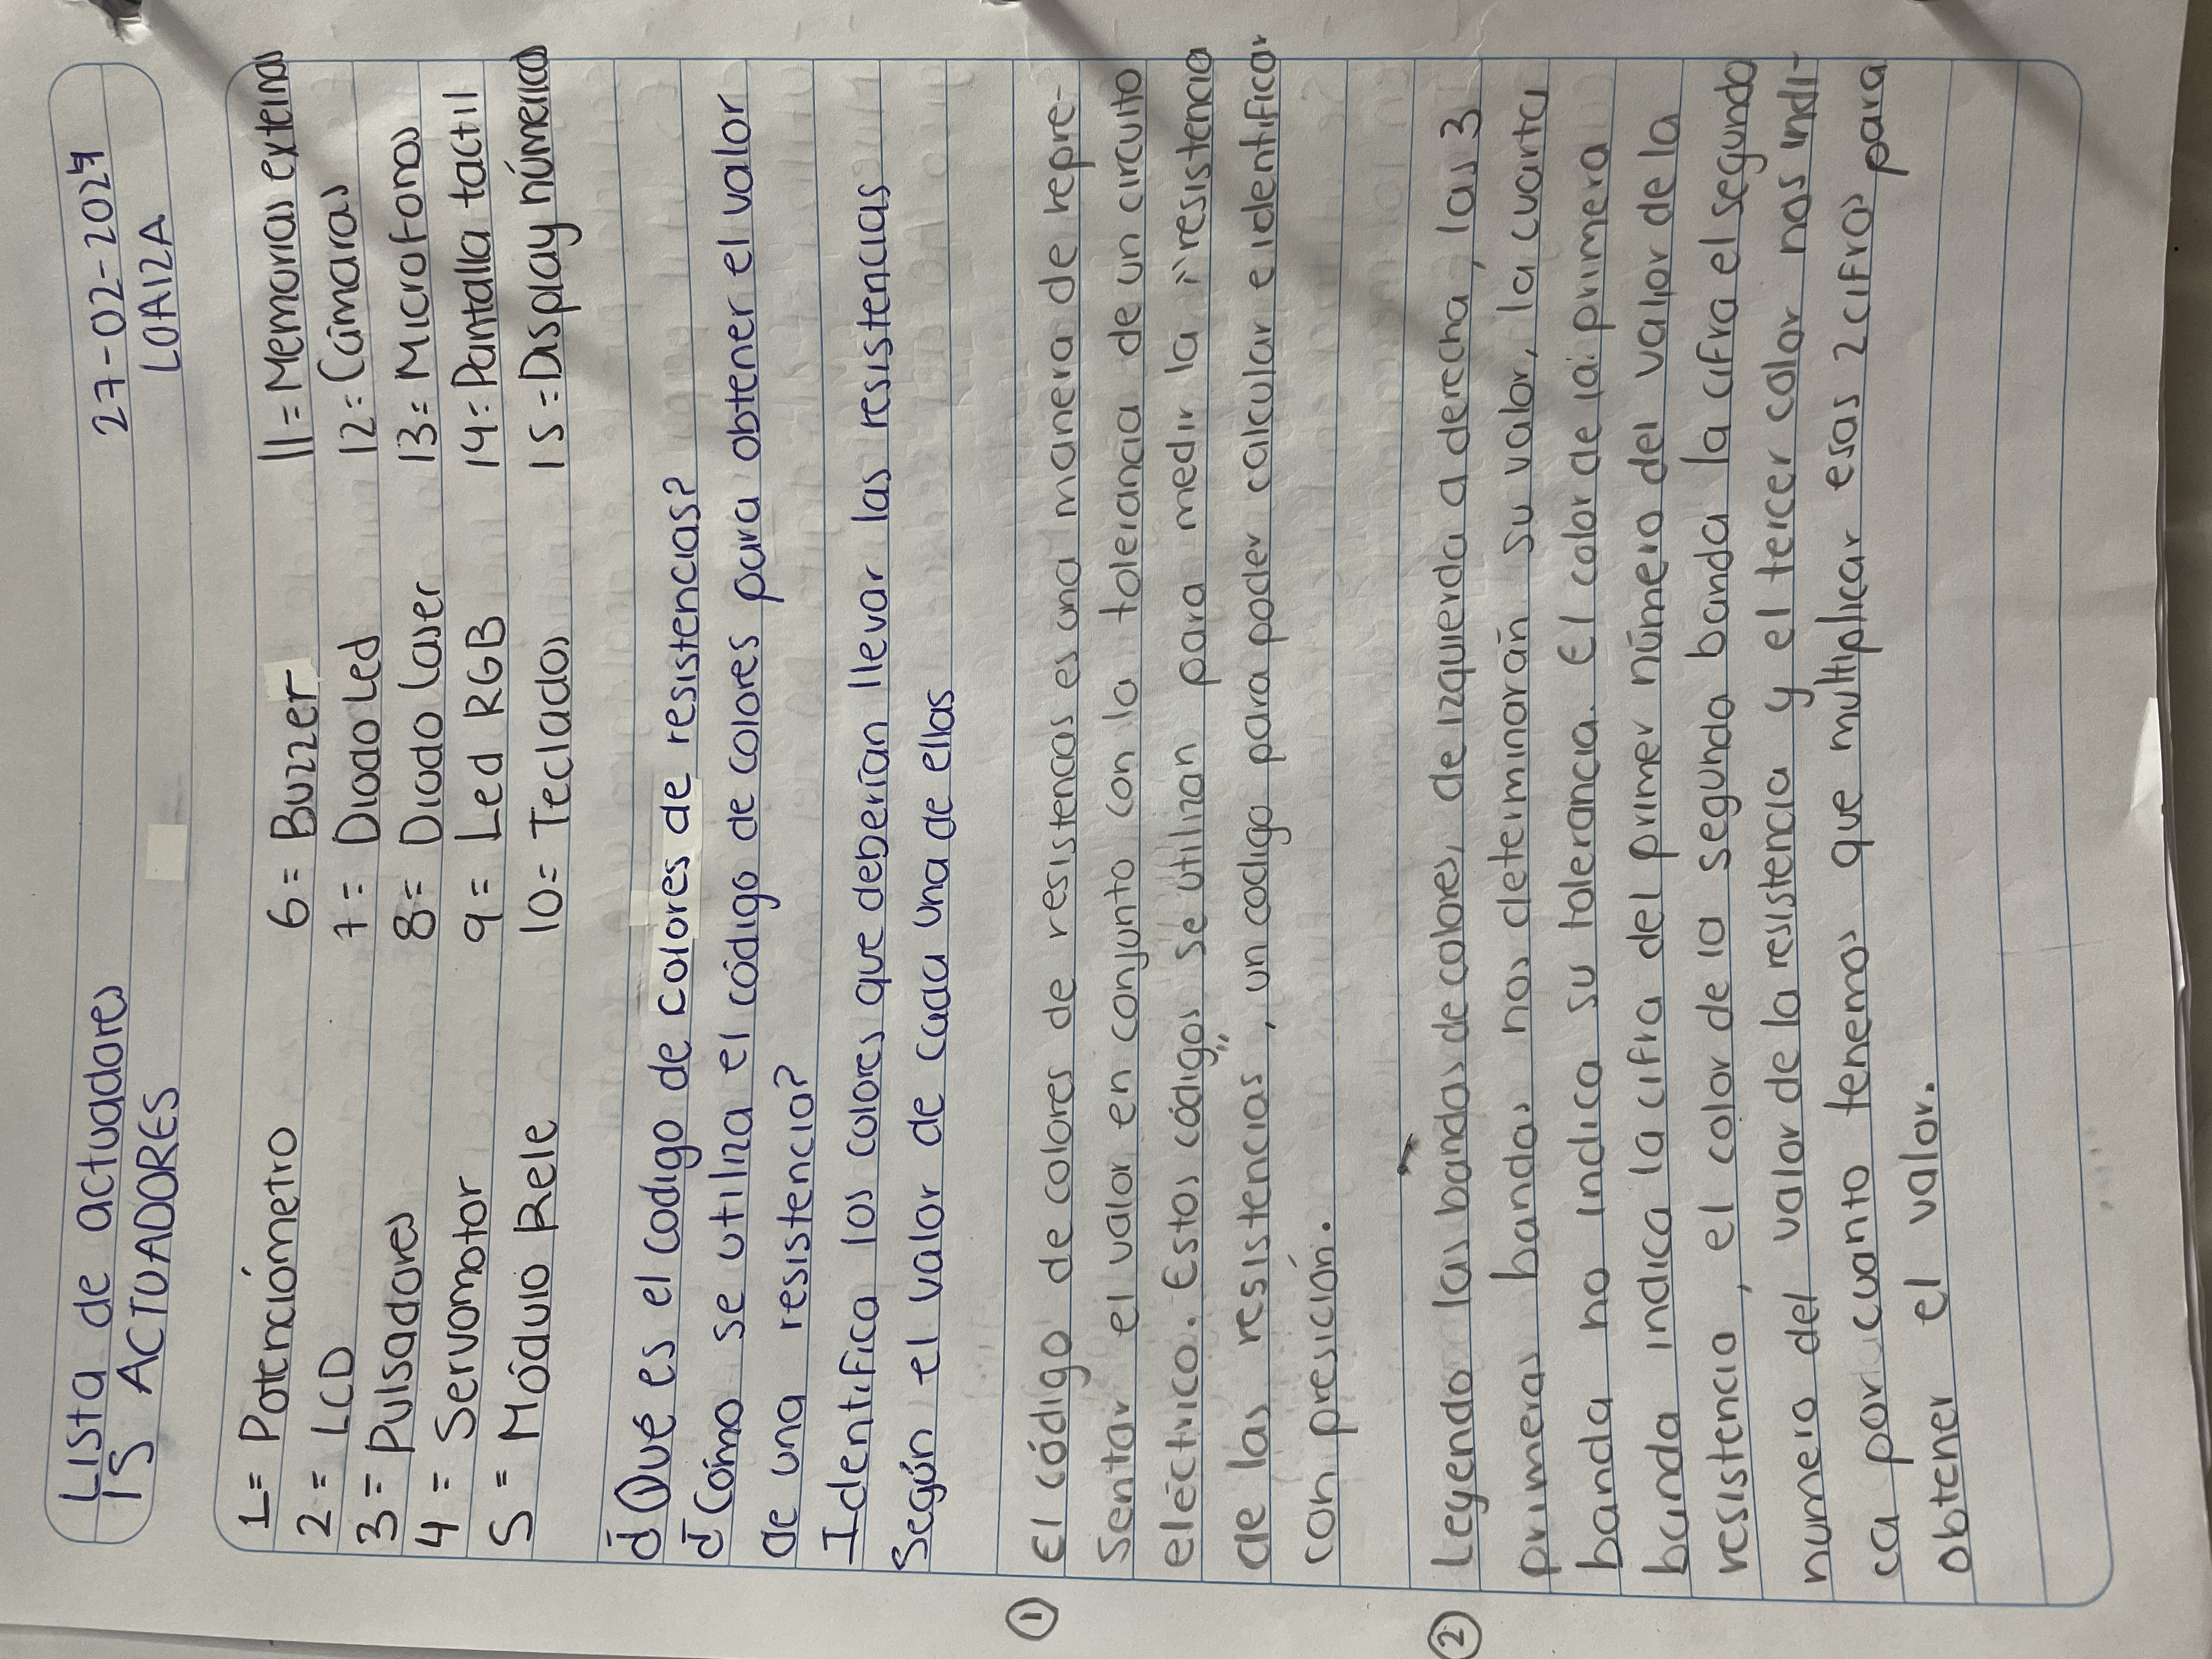 Lista de actuadores 27-02-2024
15 ACTUADORES LOAIZA
1= Potenciómetro 6= Buzzer 11= Memorias externas
2= LCD 7= Diodo Led 12= Cámaras
3= Pulsadores 8= Diodo laser 13= Microfonos
4= Servomotor 9= Led RGB 14= Pantalla tactil
5= Módulo Rele 10= Teclados 15= Display númericos
¿Que es el codigo de colores de resistencias?
¿Cómo se utiliza el código de colores para obtener el valor
de una resistencia?
Identifica los colores que deberían llevar las resistencias
según el valor de cada una de ellas
① El código de colores de resistencias es una manera de repre-
sentar el valor en conjunto con la tolerancia de un circuito
eléctrico. Estos códigos se utilizan para medir la "resistencia
de las resistencias", un codigo para poder calcular e identificar
con presición.
② Leyendo las bandas de colores, de izquierda a derecha, las 3
primeras bandas nos determinarán su valor, la cuarta
banda no indica su tolerancia. El color de la primera
banda indica la cifra del primer número del valor de la
resistencia, el color de la segunda banda la cifra el segundo
numero del valor de la resistencia y el tercer color nos indi-
ca por cuanto tenemos que multiplicar esas 2 cifras para
obtener el valor.